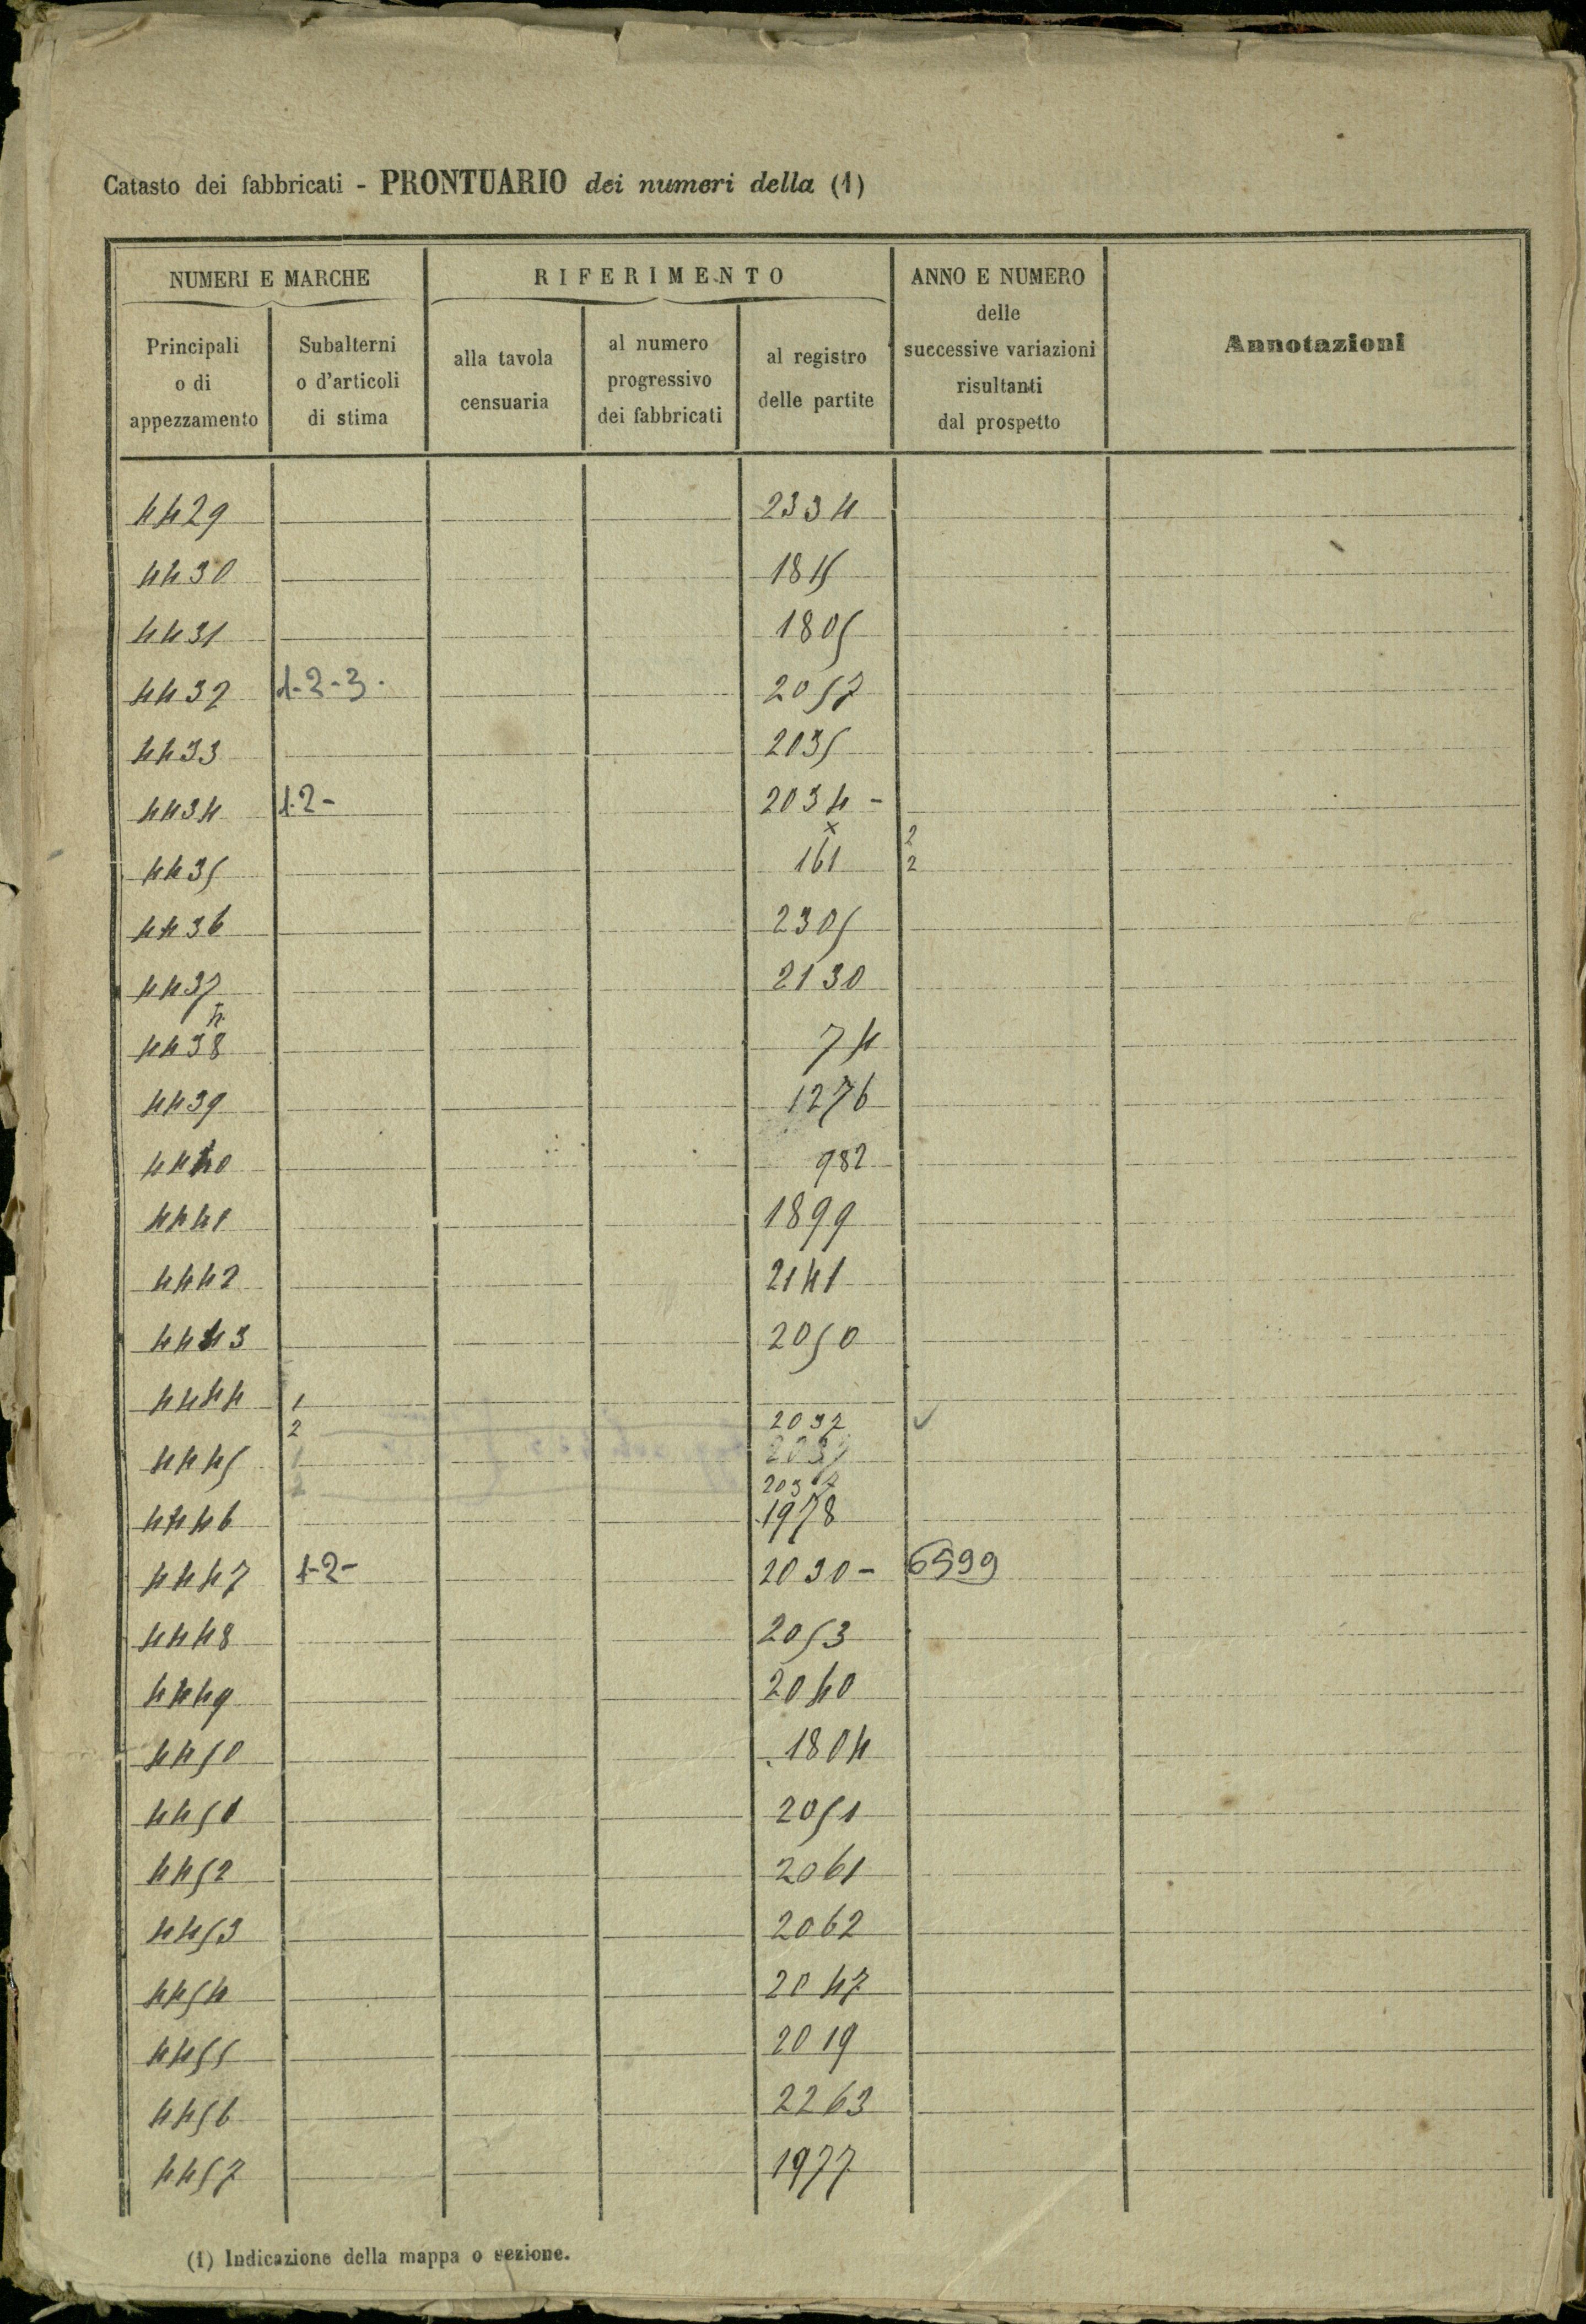 Catasto dei fabbricati - PRONTUARIO dei numeri della (1)
NUMERI E MARCHE
RIFERIMENTO
ANNO E NUMERO
delle
successive variazioni
risultanti
dal prospetto
Annotazioni
Principali
o di
appezzamento
Subalterni
o d'articoli
di stima
alla tavola
censuaria
al numero
progressivo
dei fabbricati
al registro
delle partite
4429 2334
4430
4431 1805
4432 1-2-3- 2057
4433 2035
4434 1-2- 2034 -
x 2
4435 161 2
4436 2305
4437 2130
4438 74
4439 1276
4440 982
4441 1899
4442 2141
4443 2050
4444 1
2 2037 ✓
4445 1
2 2037
4446 1978
4447 1-2- 2030- 6599
4448 2053
4449 2040
4450 1804
4451 2051
4452 2061
4453 2062
4454 2047
4455 2019
4456 2263
4457 1977
(1) Indicazione della mappa o sezione.